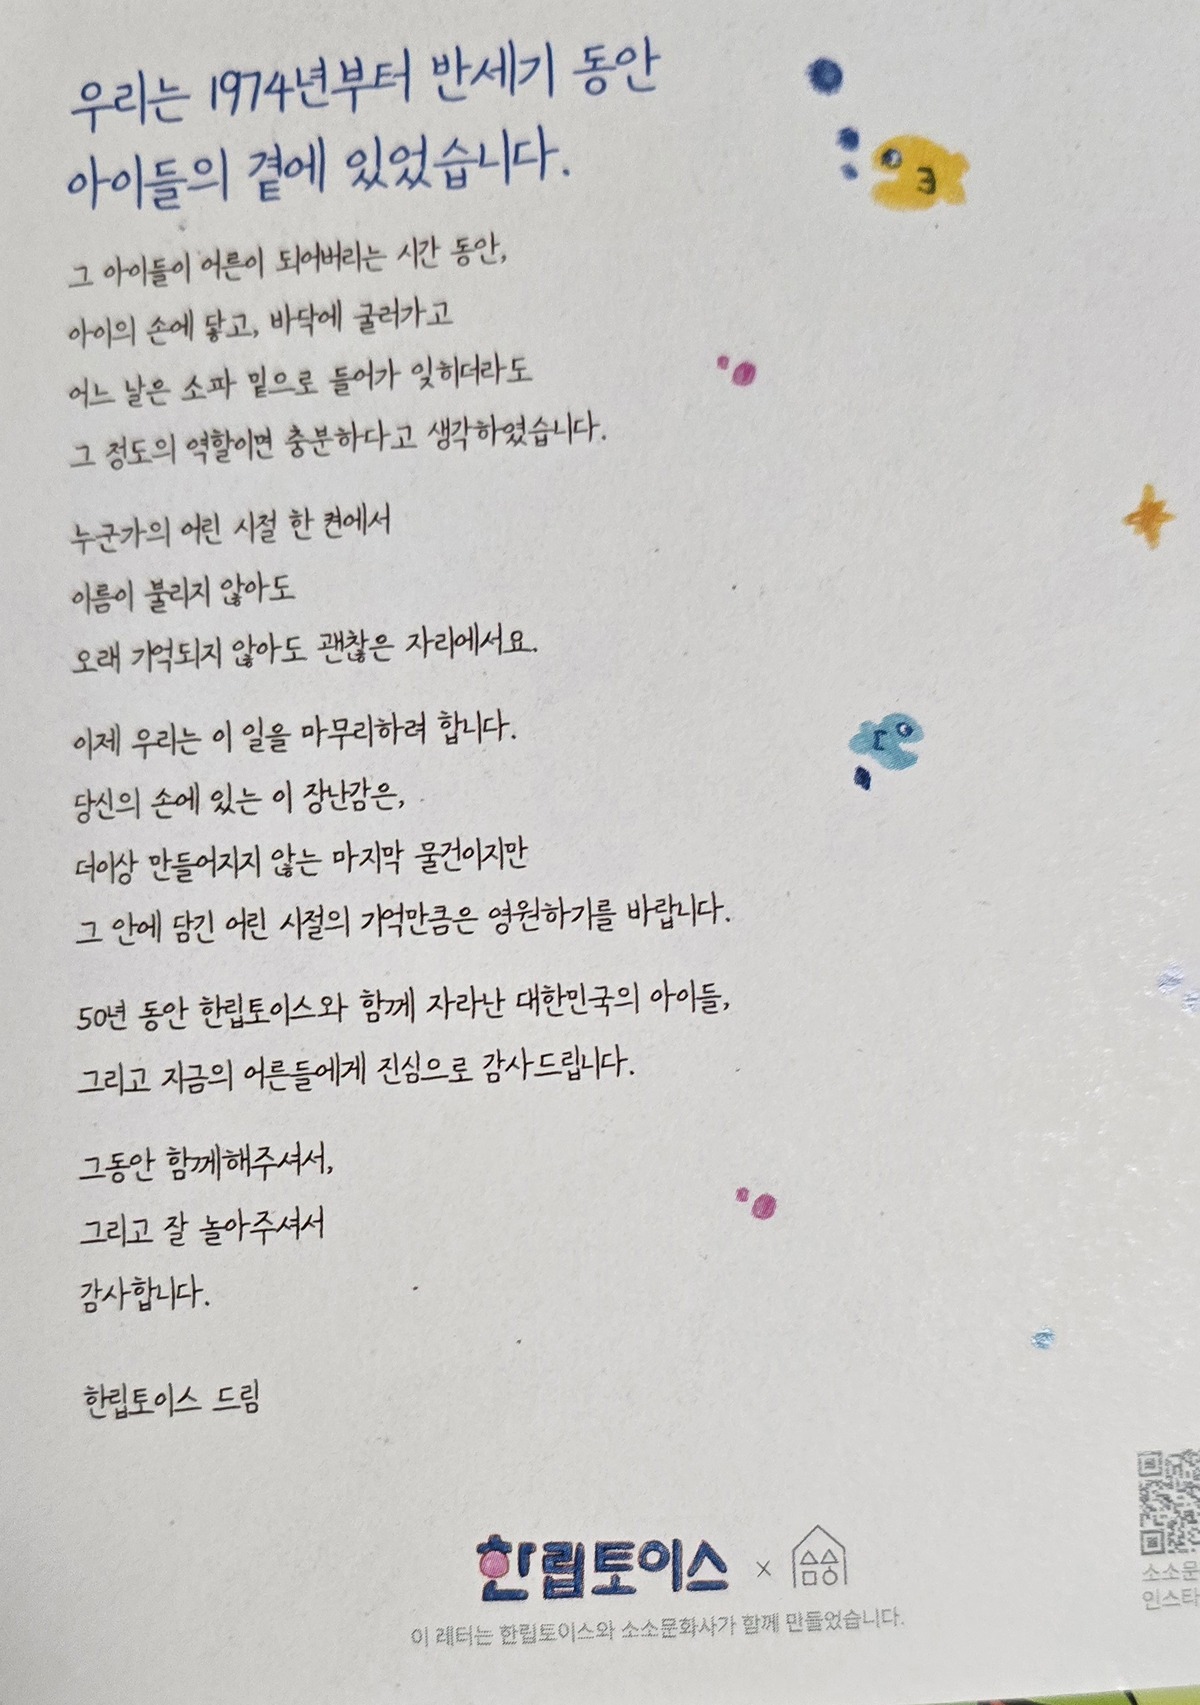 우리는 1974년부터 반세기 동안
아이들의 곁에 있었습니다.
그 아이들이 어른이 되어버리는 시간 동안,
아이의 손에 닿고, 바닥에 굴러가고
어느 날은 소파 밑으로 들어가 잊히더라도
그 정도의 역할이면 충분하다고 생각하였습니다.
누군가의 어린 시절 한 켠에서
이름이 불리지 않아도
오래 기억되지 않아도 괜찮은 자리에서요.
이제 우리는 이 일을 마무리하려 합니다.
당신의 손에 있는 이 장난감은,
더이상 만들어지지 않는 마지막 물건이지만
그 안에 담긴 어린 시절의 기억만큼은 영원하기를 바랍니다.
50년 동안 한립토이스와 함께 자라난 대한민국의 아이들,
그리고 지금의 어른들에게 진심으로 감사드립니다.
그동안 함께해주셔서,
그리고 잘 놀아주셔서
감사합니다.
한립토이스 드림
한립토이스 x
이 레터는 한립토이스와 소소문화사가 함께 만들었습니다.
소소문
인스타